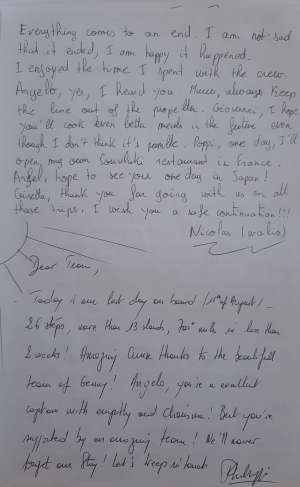 Everything comes to an end. I am not sad
that it ended, I am happy it happened.
I enjoyed the time I spent with the crew.
Angelo, yes, I heard you Marco, always keep
the line out of the propeller. Giovanni, I hope
you'll cook even better meals in the future even
though I don't think it's possible. Pops, one day, I'll
open my own Souvlaki restaurant in France.
hope to see you one day in Japan!
thank you for going with us on all
those trips. I wish you a safe continuation!!!
Nicolas
Dear Team,
Today is our last day on board (11th of August) -
26 stops, more than 13 islands, 700 miles in less than
2 weeks! Amazing Cruise thanks to the beautiful
team of Genny! Angelo, you're a excellent
captain with empathy and charisma! But you're
supported by an amazing team! We'll never
forget our Stay! Let's keep in touch
Philippe